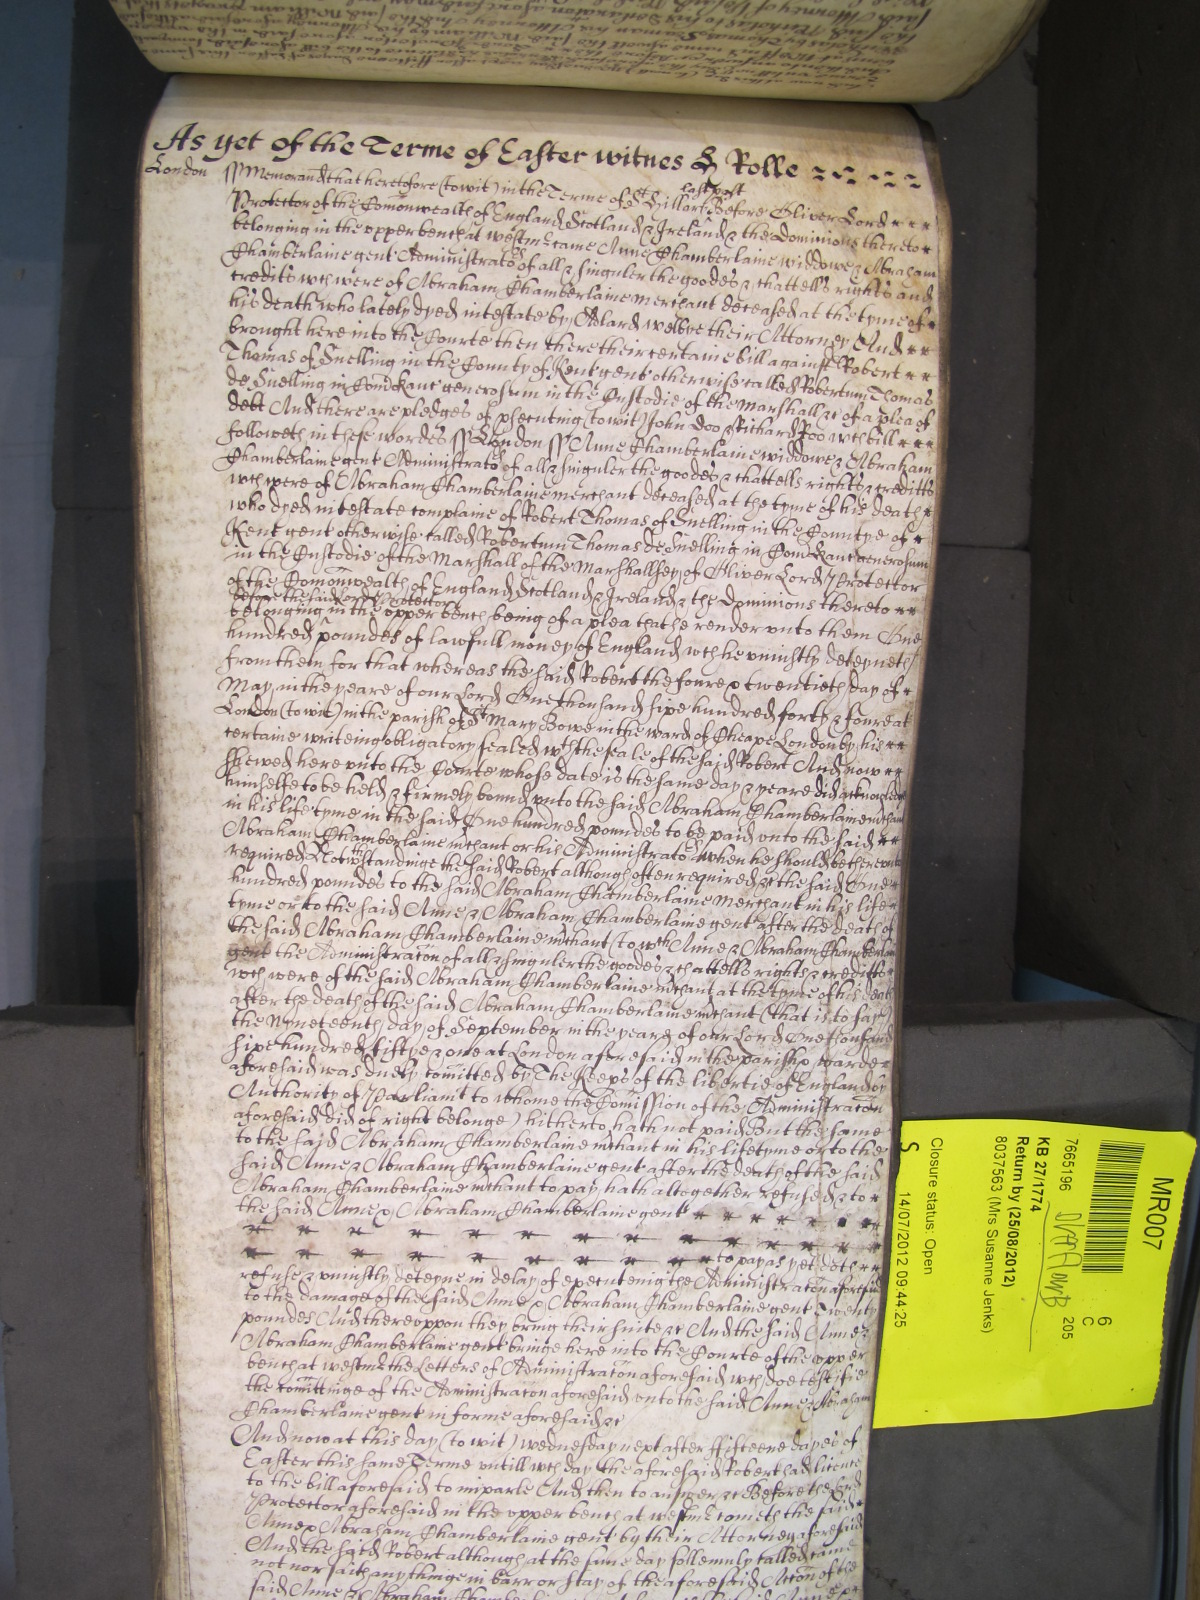 As yet of the Terme of Easter witnes H Rolle
London ss Memorand that heretofore (to wit) in the Terme of St Hillary last past Before Oliver Lord
Protector of the Comonwealth of England Scotland & Ireland & the Dominions thereto
belonging in the upper bench at westmr came Anne Chamberlaine widdowe & Abraham
Chamberlaine gent Administrators of all & singuler the goodes & chattells rights and
creditts wch were of Abraham Chamberlaine merchant deceased at the tyme of
his death who lately dyed intestate by Adlard Welbye their Attorney And
brought here into the Courte then there their certaine bill against Robert
Thomas of Snelling in the County of Kent gent otherwise called Robertum Thomas
de Snelling in Com Kanc generosum in the Custodie of the Marshall &c of a plea of
debt And there are pledges of psecuting (to wit) John Doo & Richard Roo wch bill
followeth in these wordes ss London ss Anne Chamberlaine widdowe & Abraham
Chamberlaine gent Administrators of all & singuler the goodes & chattells rights & creditts
wch were of Abraham Chamberlaine merchant deceased at the tyme of his death
who dyed intestate complaine of Robert Thomas of Snelling in the Countye of
Kent gent otherwise called Robertum Thomas de Snelling in Com Kanc generosum
in the Custodie of the Marshall of the Marshallsey of Oliver Lord Protector
of the Comonwealth of England Scotland & Ireland & the Dominions thereto
before the said Lord Protector
belonging in the upper bench being of a plea that he render unto them One
hundred poundes of lawfull money of England wch he uniustly deteyneth
from them for that whereas the said Robert the foure & twentieth day of
May in the yeare of our Lord One thousand sixe hundred forty & foure at
London (to wit) in the parish of St Mary Bowe in the ward of Cheape London by his
certaine writeing obligatory sealed wth the seale of the said Robert And now
shewed here unto the Courte whose date is the same day & yeare did acknowledge
himselfe to be held & firmely bound unto the said Abraham Chamberlaine mchant
in his life tyme in the said One hundred poundes to be paid unto the said
Abraham Chamberlaine mchant or his Administrators when he should be thereunto
required Notwthstandinge the said Robert although often required &c the said One
hundred poundes to the said Abraham Chamberlaine merchant in his life
tyme or to the said Anne & Abraham Chamberlaine gent after the death of
the said Abraham Chamberlaine mchant (to wch Anne & Abraham Chamberlain
gent the Administracon of all & singuler the goodes & chattells rights & creditts
wch were of the said Abraham Chamberlaine mchant at the tyme of his death
after the death of the said Abraham Chamberlaine mchant (that is to say)
the Nyneteenth day of September in the yeare of our Lord One thousand
sixe hundred fiftye & one at London aforesaid in the parish & warde
aforesaid was duely comitted by The Keeps of the libertie of England by
Authority of Parliamt to whome the Comission of the Administracon
aforesaid did of right belonge) hitherto hath not paid But the same
to the said Abraham Chamberlaine mchant in his lifetyme or to the
said Anne & Abraham Chamberlaine gent after the death of the said
Abraham Chamberlaine mchant to pay hath altogether refused & to
the said Anne & Abraham Chamberlaine gent
to pay as yet doth
refuse & uniustly deteyne in delay of executeing the Administracon aforesaid
to the damage of the said Anne & Abraham Chamberlaine gent Twenty
poundes And thereoppon they bring their suite &c And the said Anne &
Abraham Chamberlaine gent bringe here into the Courte of the upper
bench at westmr the Letters of Administracon aforesaid wch doe testifie
the comittinge of the Administracon aforesaid unto the said Anne & Abraham
Chamberlaine gent in forme aforesaid &c
And now at this day (to wit) wednesday next after ffifteene dayes of
Easter this same Terme untill wch day the aforesaid Robert had licence
to the bill aforesaid to imparle And then to answer &c Before the said
Protector aforesaid in the upper bench at westmr cometh the said
Anne & Abraham Chamberlaine gent by their Attorney aforesaid
And the said Robert although at the same day sollemnly called came
not nor saith anythinge in barr or stay of the aforesaid Accon of the
said Anne & Abraham
MR007
6
C
205
7665196
KB 27/1774
Return by (25/08/2012)
8037563 (Mrs Susanne Jenks)
Closure status: Open
S
14/07/2012 09:44:25